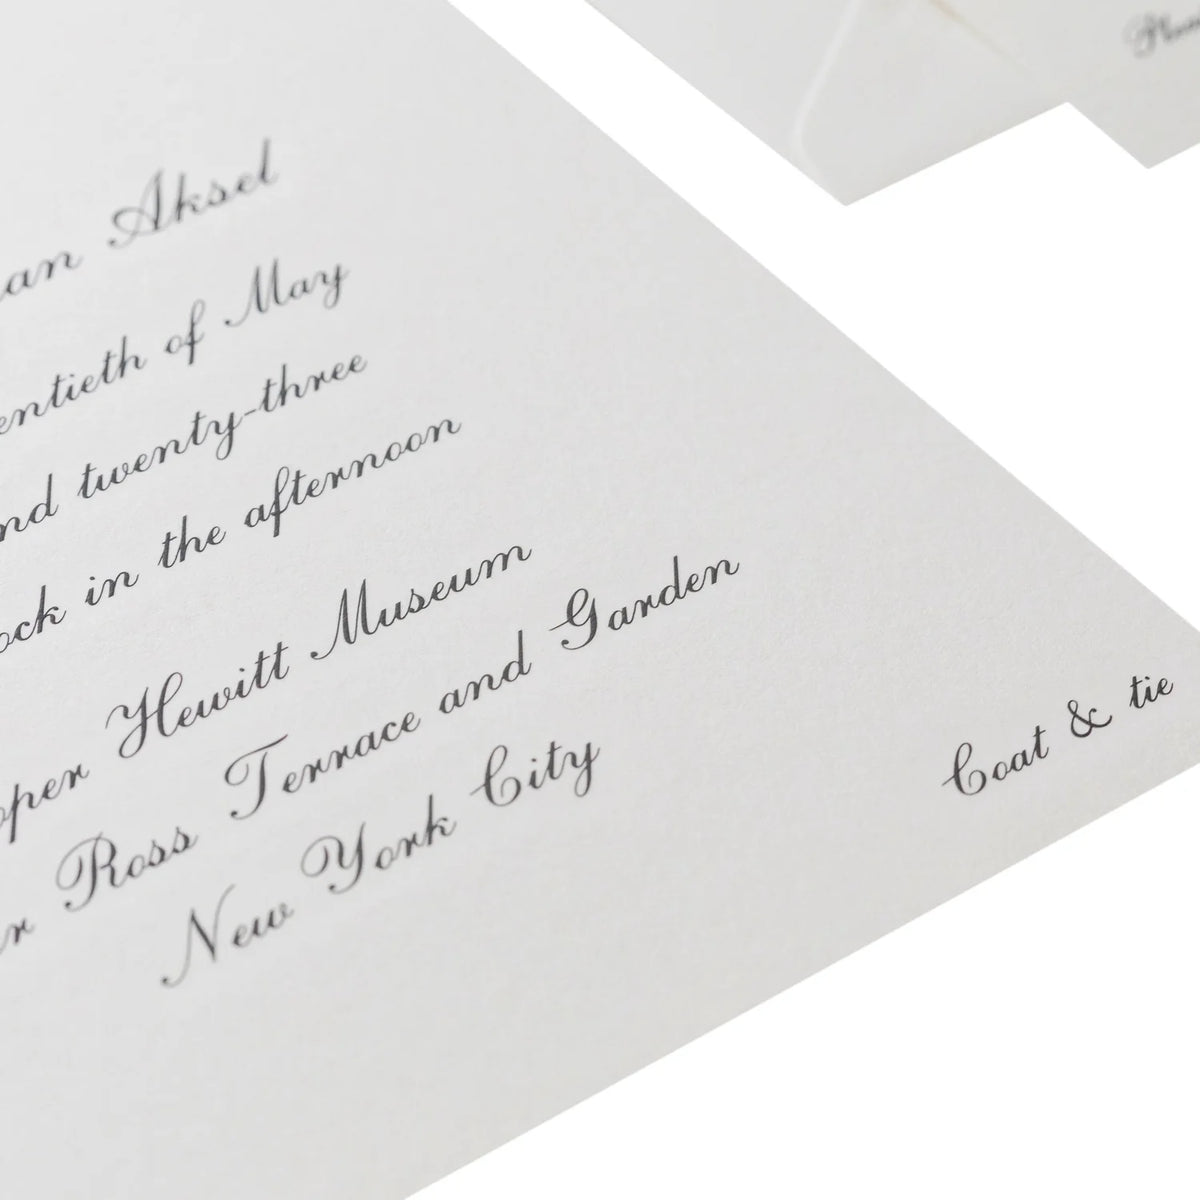 an Aksel
entieth of May
nd twenty-three
ock in the afternoon
oper Hewitt Museum
r Ross Terrace and Garden
New York City
Coat & tie